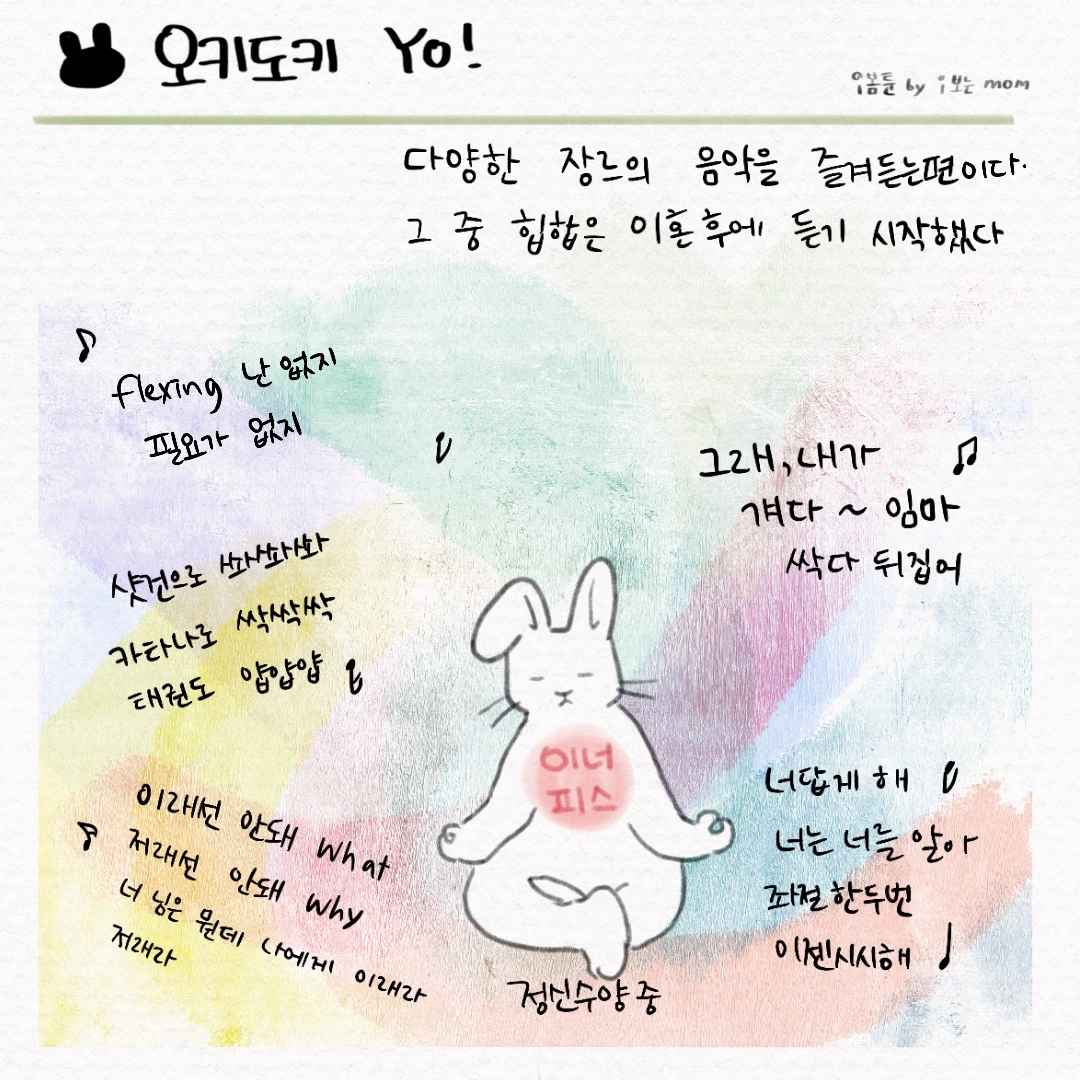 오키도키 Yo!
우봄툰 by 우보는 mom
다양한 장르의 음악을 즐겨듣는편이다.
그 중 힙합은 이혼 후에 듣기 시작했다
flexing 난 없지
필요가 없지
그래, 내가
껴다 ~ 임마
싹다 뒤집어
샷건으로 쏴쏴쏴
카타나로 싹싹싹
태권도 얍얍얍
이너
피스
너답게 해
너는 너를 알아
좌절 한두번
이젠시시해
이래선 안돼 What
저래선 안돼 Why
너 님은 뭔데 나에게 이래라
저래라
정신수양 중